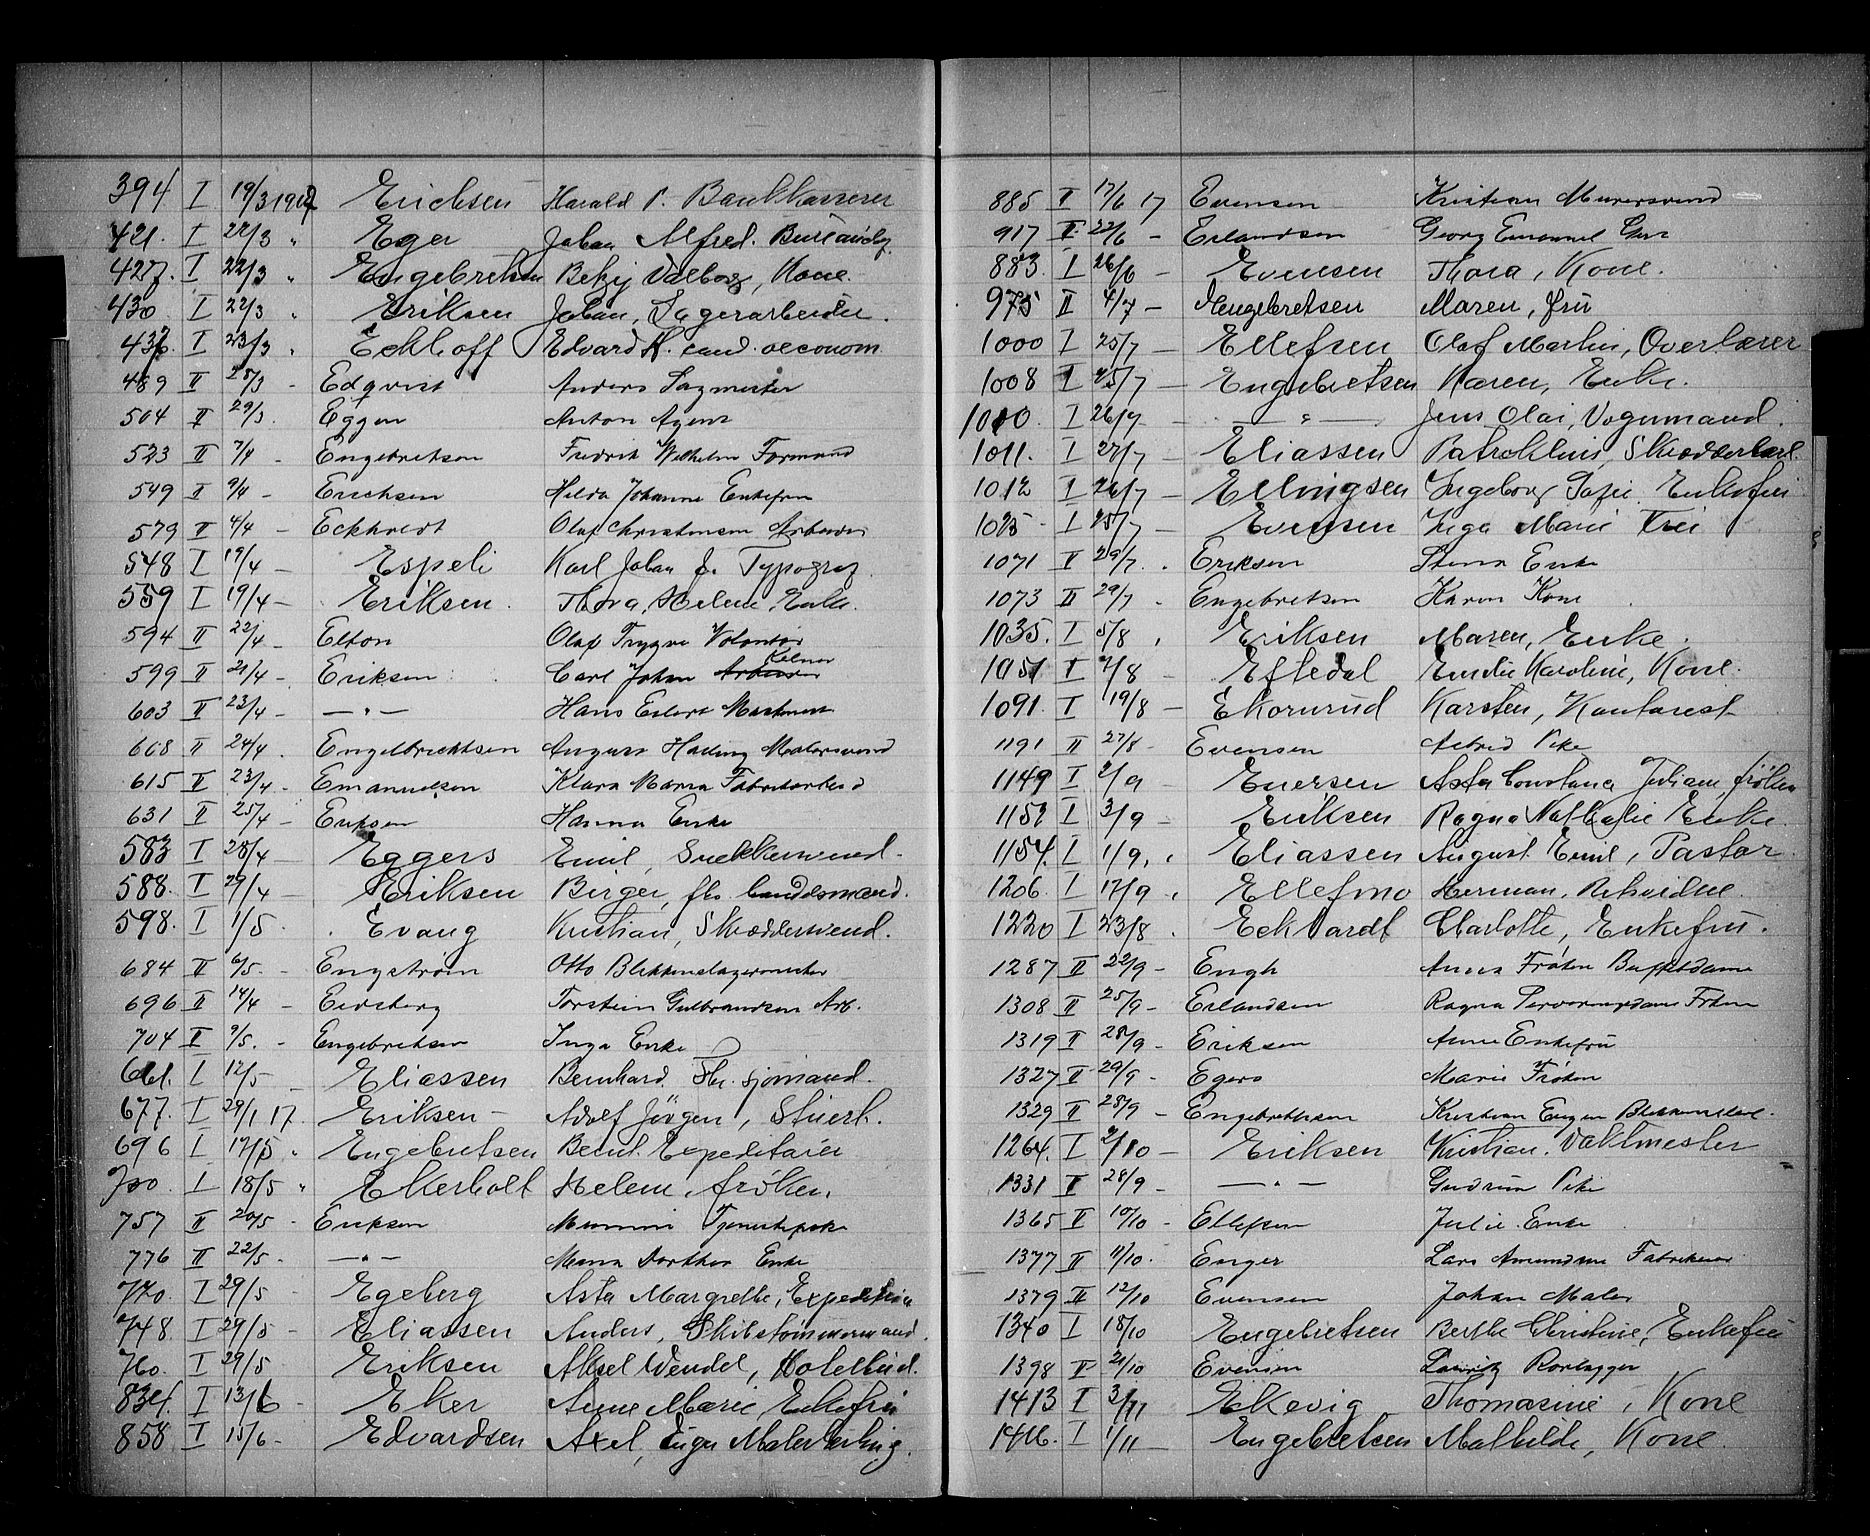 394 I 19/3 1917 Erichsen Harald P. Bankkasserer
421. I 22/3 " Eger Johan Alfred.
427. I 22/3 " Engebretsen Betzy Valborg, Kone.
430 I 22/3 " Eriksen Johan, Lagerarbeider.
436. I 23/3 " Eckhoff Edvard H. cand. oeconom
489 II 25/3 - Edqvist Anders Sagmester
504 II 29/3. Eggen Anton Agent
523 II 7/4 - Engebretsen Fredrik Wilhelm Formand
549 II 9/4 - Erichsen Hilda Johanne Enkefru
579 II 4/4 - Eckhardt Olaf Christensen Arbeider
548 I 19/4 - Espeli Karl Johan f. Typograf
559 I 19/4 - Eriksen. Thora Helene, Enke.
594 II 22/4 - Elton Olaf Trygve Volontør
599 II 21/4 - Eriksen Carl Johan Arbeider Kelner
603 II 23/4 - — " — Hans Eilert Maskinist
608 II 24/4 . Engelbrecktsen August Malersvend
615 II 23/4 - Emanuelsen Klara Maria Fabrikarbeid
631 II 25/4 - Eriksen Hanna Enke
583 I 28/4 - Eggers Emil, Snekkersvend.
588. I 29/4 - Eriksen Birger, fhv. landsmand.
598. I 1/5 . Evang Kristian, Skræddersvend.
684 II 6/5. - Engström Otto Blikkenslagermester
696 II 14/4 - Eidsberg Torstein Gulbrandsen Arb.
704 II 9/5. - Engebretsen Inga Enke
661. I 12/5 - Eliassen Bernhard Fhv. sjømand.
677. I 29/1 17. Eriksen - Adolf Jörgen, Stuert.
696 I 17/5 " Engebretsen Bernt. Expeditør
700. I 18/5 " Ekerholt Helene, frøken.
757 II 20/5 - Eriksen Mimmi Tjenestepike
776 II 22/5 - — " — Maria Dorthea Enke
770. I 29/5 - Egeberg Asta Margrethe, Expeditrice
748. I 29/5 - Eliassen Anders, Skibstømmermand.
760. I 29/5 Eriksen Aksel Wendel, Hotelbud.
834. I 13/6 - Eker Anne Marie Enkefru
858 I 15/6 - Edvardsen Axel, Malerlærling.
885 II 17/6 17 Evensen Kristian Murersvend
917 II 22/6 - Erlandsen Georg Emanuel
883. I 26/6 - Evensen Thora, Kone.
975 II 4/7 - Engebretsen Maren, fru
1000 I 25/7 - Ellefsen Olaf Martin, Overlærer
1008 I 25/7 - Engebretsen Karen, Enke.
1010. I 26/7 - — " — Jens Olai, Vognmand.
1011. I 27/7 - Eliassen Patroklus, Skrædder
1012 I 26/7 - Ellingsen Ingeborg Sofie Enkefru
1025 I 25/7 - Evensen Inga Marie
1071 II 29/7. . Eriksen Stina Enke
1073 II 29/7 . Engebretsen Karen Kone
1035. I 5/8 . Eriksen Maren, Enke.
1051 I 7/8 - Eftedal Emilie Karoline, Kone.
1091. I 19/8 - Ekornrud Karsten, Kontorist
1191 II 27/8 - Evensen Astrid Pike
1149 I 2/9 - Enersen Asta Constance Juliane, frøken
1151 I 3/9 - Eriksen Ragna Nathalie Enke
1154. I 1/9. . Eliassen August Emil, Pastor
1206. I 17/9 . Ellefmo Herman,
1220 I 23/8 . Eckhardt Charlotte, Enkefru.
1287 II 22/9 - Engh Anna Frøken Buffetdame
1308 II 25/9 - Erlandsen Ragna Frøken
1319 II 28/9 - Eriksen Anne Enkefru
1327 II 29/9 - Egers Marie Frøken
1329 II 28/9 - Engebretsen Kristian Eugen
1264. I 2/10 - Eriksen Kristian. Vaktmester
1331 II 28/9 - — " — Gudrun Pike
1365 II 10/10 - Ellefsen Julie Enke
1377 II 11/10. Enger Lars Amundsen
1379 II 12/10 Evensen Johan Maler
1340 I 18/10 Engebretsen Berthe Christine, Enkefru
1398 II 21/10 Evensen Lauritz Rørlægger
1413 I 3/11 Ekevig Thomasine, Kone
1416. I 1/11 - Engebretsen Mathilde, Kone.